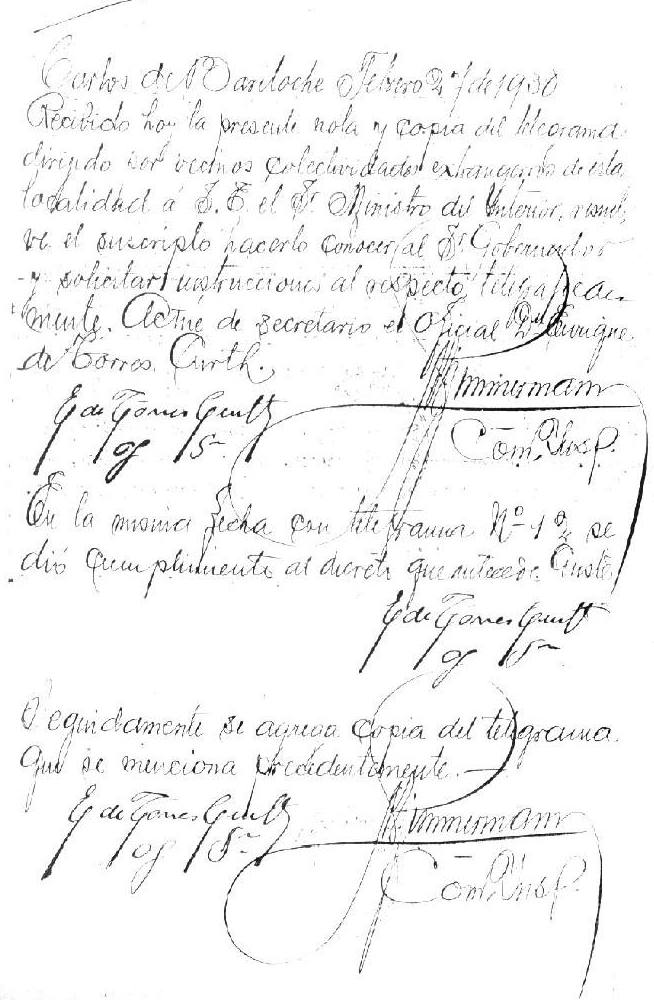 Carlos de Bariloche Febrero 27 de 1930
Recivido hoy la presente nota y copia del telegrama
dirijido por vecinos colectividades extrangeras de esta
localidad á S.E. el Sr. Ministro del Interior, resuel
ve el suscripto hacerlo conocer al Sr Gobernador
y solicitar instrucciones al respecto telegrafica
mente. Actué de secretario el Oficial 2º Enrique
de Torres Curth.
E de Torres Curth
of Sr
Zimmermann
Com. Insp.
En la misma fecha con telegrama Nº 12 se
dió cumplimiento al decreto que antecede. Conste
E de Torres Curth
of Sr
Seguidamente se agrega copia del telegrama
que se menciona precedentemente.
E de Torres Curth
of Sr
Zimmermann
Com. Insp.